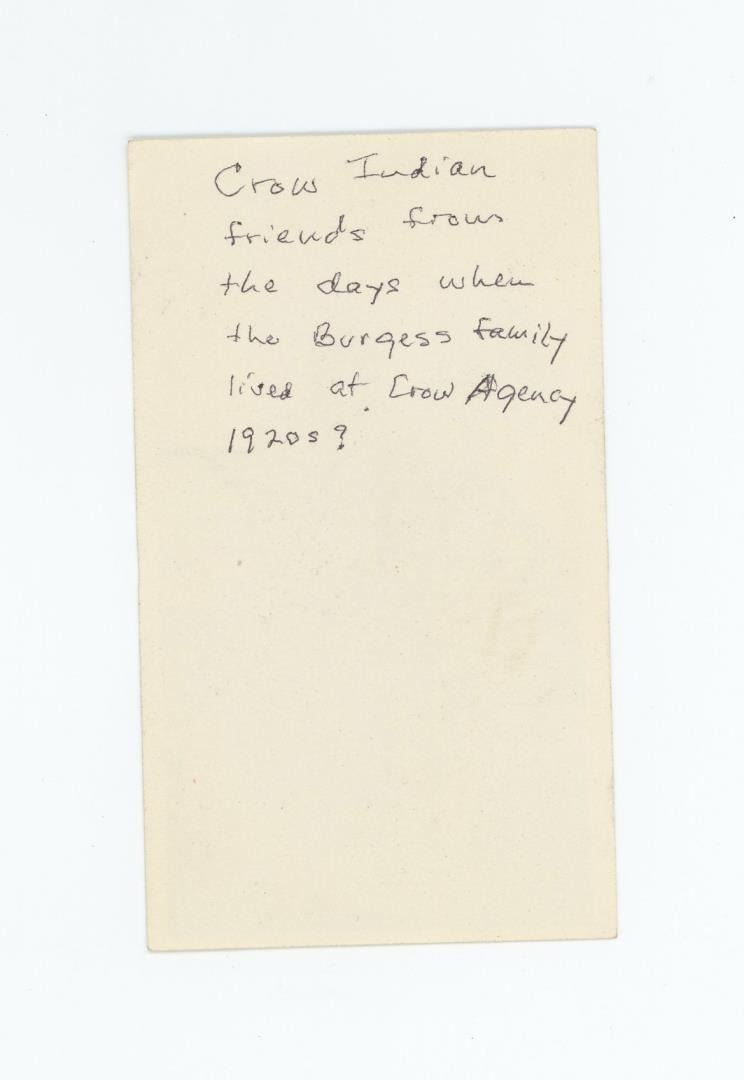 Crow Indian
friends from
the days when
the Burgess family
lived at Crow Agency
1920s?